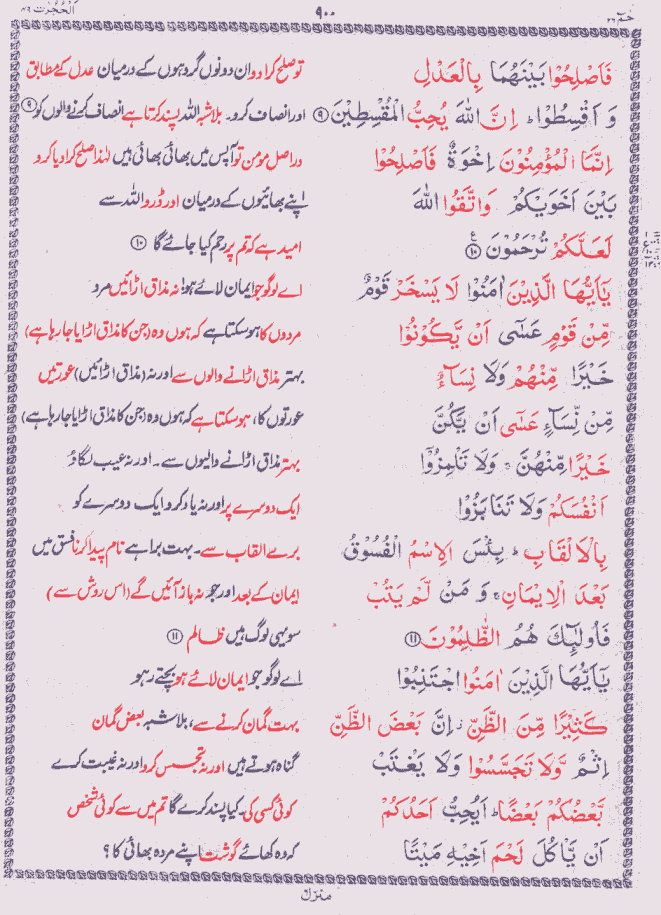 حٰمٓ ۲۶
۹۰۰
اَلْحُجُرٰت ۴۹
فَاَصْلِحُوْا بَيْنَهُمَا بِالْعَدْلِ
توصلح کرادو ان دونوں گروہوں کے درمیان عدل کے مطابق
وَ اَقْسِطُوْا ؕ اِنَّ اللّٰهَ يُحِبُّ الْمُقْسِطِيْنَ ⑨
اور انصاف کرو۔ بلاشبہ اللہ پسند کرتا ہے انصاف کرنے والوں کو ⑨
اِنَّمَا الْمُؤْمِنُوْنَ اِخْوَةٌ فَاَصْلِحُوْا
دراصل مومن تو آپس میں بھائی بھائی ہیں لہٰذا صلح کرا دیا کرو
بَيْنَ اَخَوَيْكُمْ وَاتَّقُوا اللّٰهَ
اپنے بھائیوں کے درمیان اور ڈرو اللہ سے
لَعَلَّكُمْ تُرْحَمُوْنَ ⑩ ع
امید ہے کہ تم پر رحم کیا جائے گا ⑩
يٰۤاَيُّهَا الَّذِيْنَ اٰمَنُوْا لَا يَسْخَرْ قَوْمٌ
اے لوگو جو ایمان لائے ہو! نہ مذاق اڑائیں مرد
مِّنْ قَوْمٍ عَسٰۤى اَنْ يَّكُوْنُوْا
مردوں کا ہوسکتا ہے کہ ہوں وہ (جن کا مذاق اڑایا جارہا ہے)
خَيْرًا مِّنْهُمْ وَلَا نِسَآءٌ
بہتر مذاق اڑانے والوں سے اور نہ (مذاق اڑائیں) عورتیں
مِّنْ نِّسَآءٍ عَسٰۤى اَنْ يَّكُنَّ
عورتوں کا، ہوسکتا ہے کہ ہوں وہ (جن کا مذاق اڑایا جارہا ہے)
خَيْرًا مِّنْهُنَّ ۚ وَلَا تَلْمِزُوْۤا
بہتر مذاق اڑانے والیوں سے۔ اور نہ عیب لگاؤ
اَنْفُسَكُمْ وَلَا تَنَابَزُوْا
ایک دوسرے پر اور نہ یاد کرو ایک دوسرے کو
بِالْاَلْقَابِ ؕ بِئْسَ الِاسْمُ الْفُسُوْقُ
برے القاب سے۔ بہت برا ہے نام پیدا کرنا فسق میں
بَعْدَ الْاِيْمَانِ ۚ وَ مَنْ لَّمْ يَتُبْ
ایمان کے بعد اور جو نہ باز آئیں گے (اس روش سے)
فَاُولٰٓئِكَ هُمُ الظّٰلِمُوْنَ ⑪
سو یہی لوگ ہیں ظالم ⑪
يٰۤاَيُّهَا الَّذِيْنَ اٰمَنُوا اجْتَنِبُوْا
اے لوگو جو ایمان لائے ہو بچتے رہو
كَثِيْرًا مِّنَ الظَّنِّ ؗ اِنَّ بَعْضَ الظَّنِّ
بہت گمان کرنے سے، بلاشبہ بعض گمان
اِثْمٌ وَّلَا تَجَسَّسُوْا وَلَا يَغْتَبْ
گناہ ہوتے ہیں اور نہ تجسس کرو اور نہ غیبت کرے
بَّعْضُكُمْ بَعْضًا ؕ اَيُحِبُّ اَحَدُكُمْ
کوئی کسی کی۔ کیا پسند کرے گا تم میں سے کوئی شخص
اَنْ يَّاْكُلَ لَحْمَ اَخِيْهِ مَيْتًا
کہ وہ کھائے گوشت اپنے مردہ بھائی کا؟
منزل